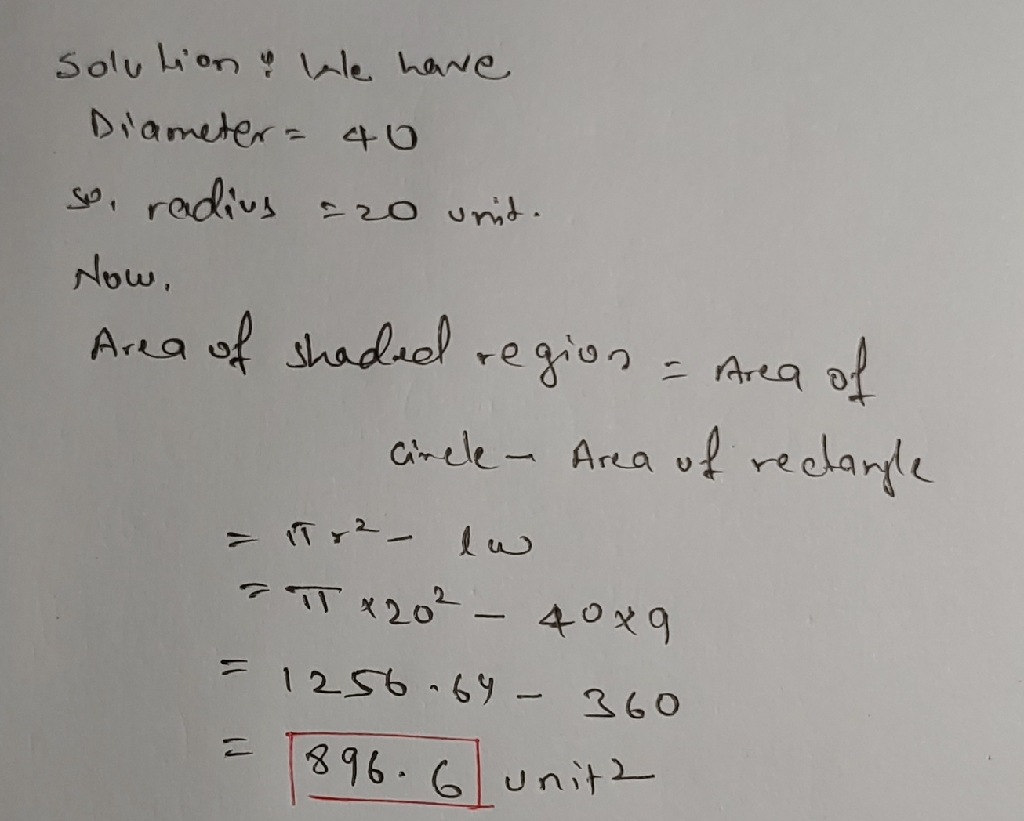 Solution : We have
Diameter = 40
so, radius = 20 unit.
Now,
Area of shaded region = Area of
circle - Area of rectangle
= πr² - lw
= π × 20² - 40×9
= 1256.64 - 360
= 896.6 unit2